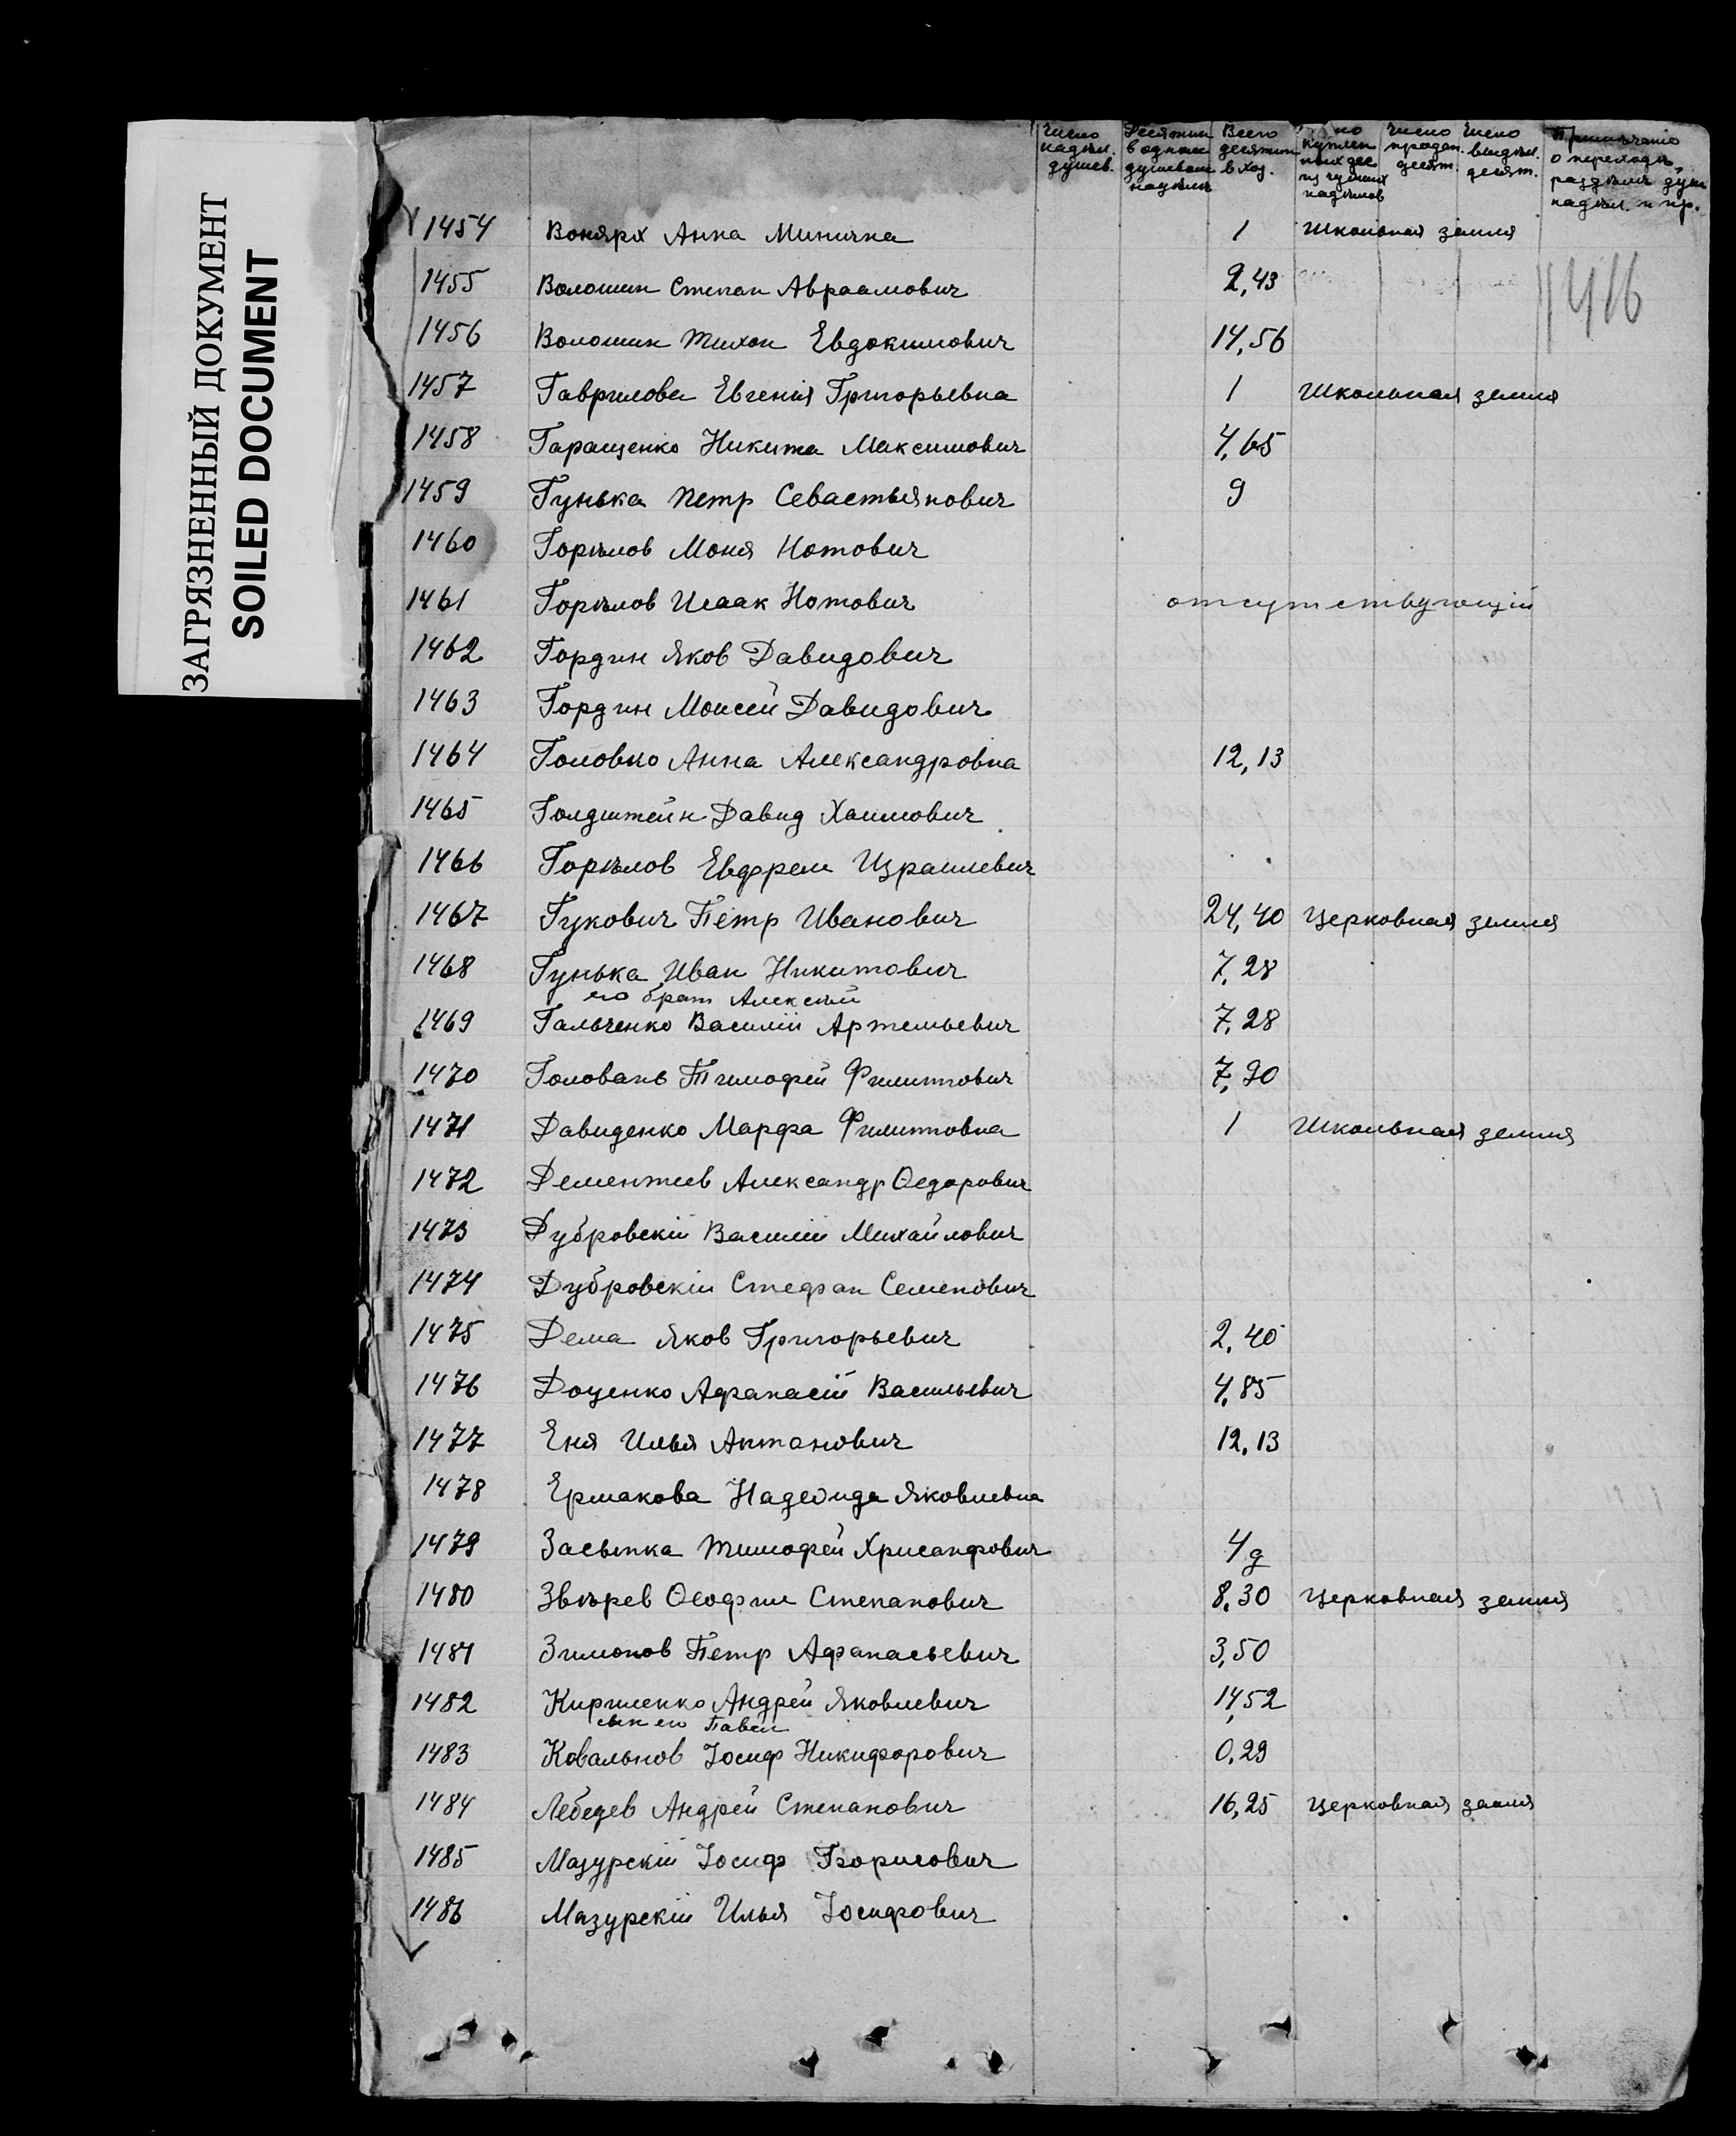 ЗАГРЯЗНЕННЫЙ ДОКУМЕНТ
SOILED DOCUMENT
Число надѣл. душев.
Десятин в одном душевом надѣлѣ
Всего десятин в хоз.
куплен ных дес. из чужих надѣлов
Число продан. десят.
Число выдѣл. десят.
Примѣчаніе о переходѣ, раздѣлѣ душ надѣл. и пр.
416
1454 Вонярх Анна Минична 1 Школьная земля
1455 Волошин Степан Авраамович 2,43
1456 Волошин Тихон Евдокимович 14,56
1457 Гаврилова Евгенія Григорьевна 1 Школьная земля
1458 Гаращенко Никита Максимович 4,65
1459 Гунька Петр Севастьянович 9
1460 Горѣлов Моня Нотович
1461 Горѣлов Исаак Нотович отсутствующій
1462 Гордин Яков Давидович
1463 Гордин Моисей Давидович
1464 Головко Анна Александровна 12,13
1465 Голдштейн Давид Хаимович
1466 Горѣлов Евфрем Израилевич
1467 Гукович Петр Иванович 24,40 Церковная земля
1468 Гунька Иван Никитович 7,28
его брат Алексѣй
1469 Гальченко Василій Артемьевич 7,28
1470 Головань Тимофей Филиппович 7,20
1471 Давиденко Марфа Филипповна 1 Школьная земля
1472 Дементьев Александр Ѳедорович
1473 Дубровскій Василій Михайлович
1474 Дубровскій Стефан Семенович
1475 Дема Яков Григорьевич 2,40
1476 Доценко Афанасій Васильевич 4,85
1477 Еня Илья Антонович 12,13
1478 Ермакова Надежда Яковлевна
1479 Засыпка Тимофей Хрисанфович 4 д
1480 Звѣрев Ѳеофил Степанович 8,30 Церковная земля
1481 Зимонов Петр Афанасьевич 3,50
1482 Кириленко Андрей Яковлевич 14,52
сын его Павел
1483 Ковальнов Іосиф Никифорович 0,29
1484 Лебедев Андрей Степанович 16,25 Церковная земля
1485 Мазурскій Іосиф Борисович
1486 Мазурскій Илья Іосифович